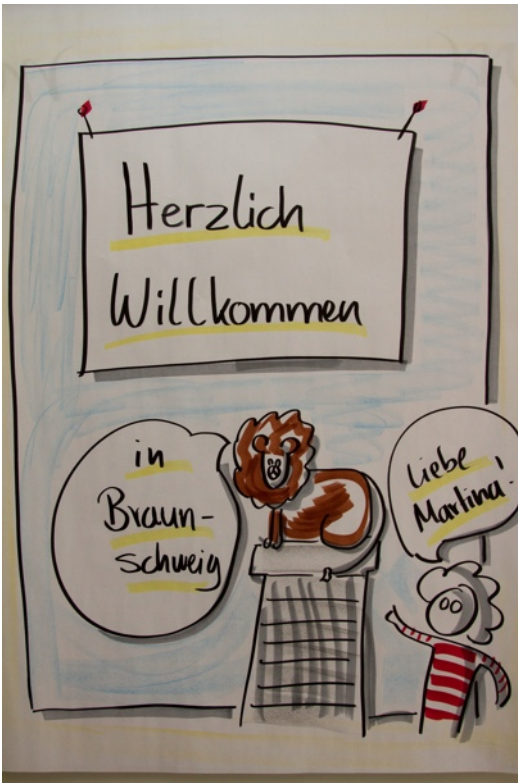 Herzlich
Willkommen
in
Braun-
schweig
Liebe
Martina!